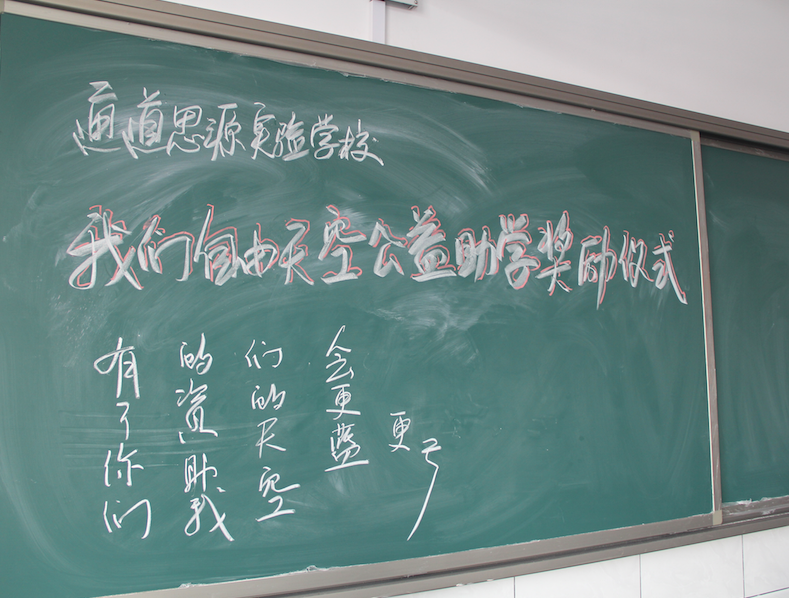 通道思源实验学校
我们自由天空公益助学奖励仪式
有了你们
的资助我
们的天空
会更蓝
更